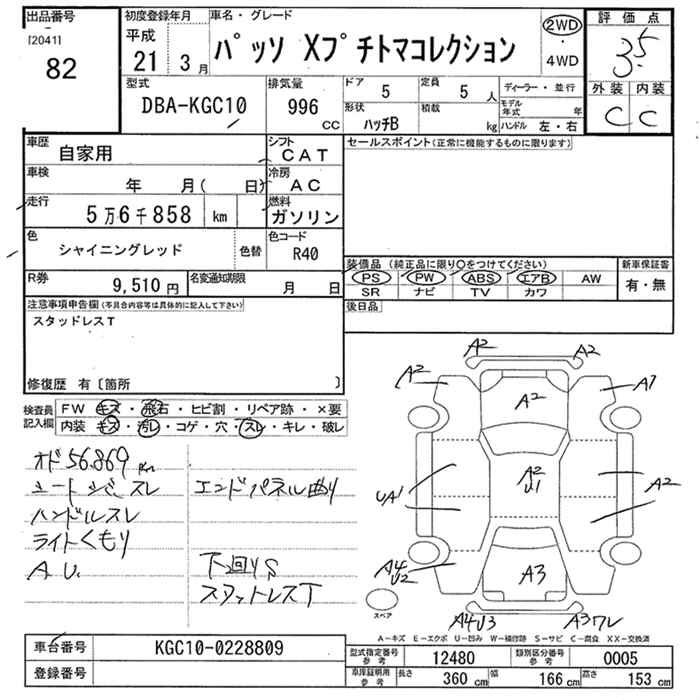 出品番号 初度登録年月 車名・グレード 評価点
[2041] 平成 2WD 3.5
82 21 3月 パッソ Xプチトマコレクション 4WD
外装 内装
型式 排気量 ドア 5 定員 5人 ディーラー・並行 C C
DBA-KGC10 996 cc 形状 ハッチB 積載 kg モデル年式 年
ハンドル 左・右
車歴 自家用 シフト CAT セールスポイント(正常に機能するものに限ります)
車検 年 月( 日) 冷房 AC
走行 5万6千858 km 燃料 ガソリン
色 シャイニングレッド 色替 色コード R40
装備品 (純正品に限り○をつけてください) 新車保証書
R券 9,510円 名変通知期限 月 日 PS PW ABS エアB AW 有・無
SR ナビ TV カワ
注意事項申告欄(不具合内容等は具体的に記入して下さい) 後日品
スタッドレスT
修復歴 有〔箇所 〕
検査員記入欄 FW キズ・飛石・ヒビ割・リペア跡・×要
内装 キズ・汚レ・コゲ・穴・スレ・キレ・破レ
オド56.869km
シートシミスレ エンドパネル曲り
ハンドルスレ
ライトくもり
A.U. 下回りS
スタットレスT
A2 A2
A2 A2 A1
A2
U1
UA1 A2
A4
U2 A3
スペア
A4U3 A3ワレ
A-キズ E-エクボ U-凹み W-補修跡 S-サビ C-腐食 XX-交換済
車台番号 KGC10-0228809 型式指定番号参考 12480 類別区分番号参考 0005
登録番号 車庫証明用参考 長さ 360 cm 幅 166 cm 高さ 153 cm